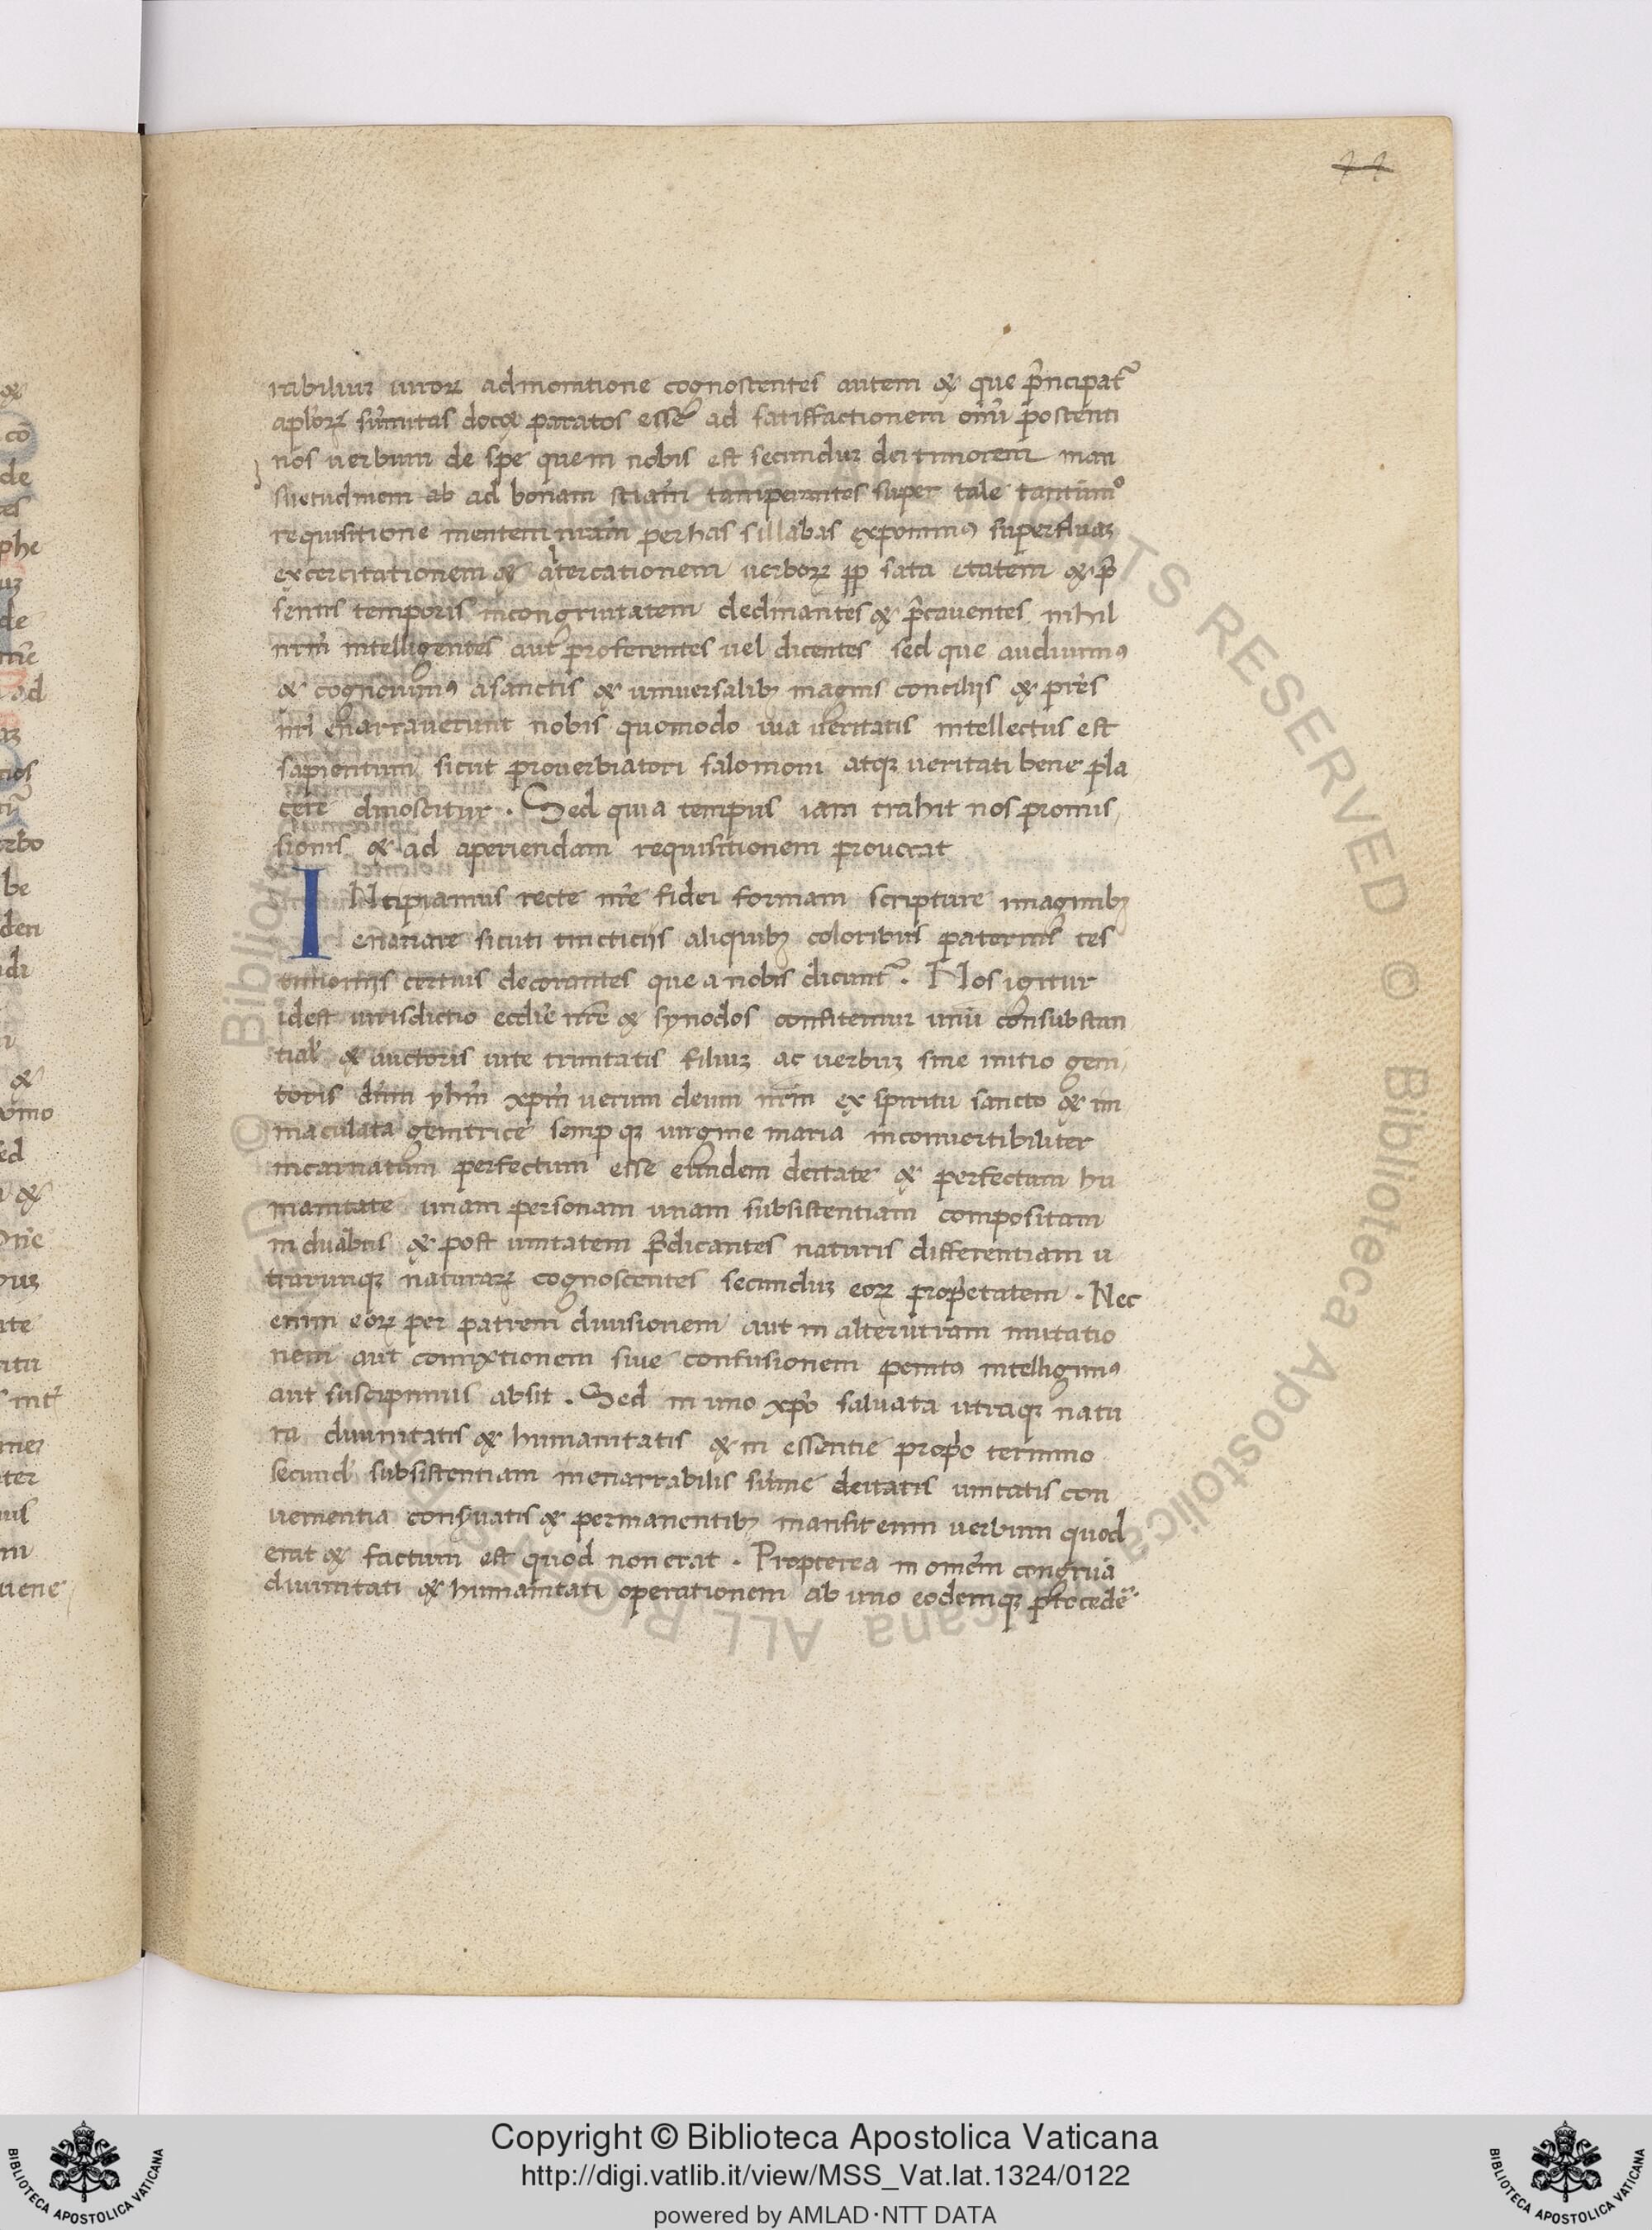 rabiliuꝫ uiroꝝ admonitione cognoscentes autem & que pͥncipatᷣ
aplo̅ꝝ su̅mitas docꝫ paratos esse ad satiffactionem om̅i poscenti
nos uerbum de spe quem nobis est secunduꝫ dei timorem man
suetudinem ab ad bonam sciam̅ temperantes super tale tantumͦ
requisitione mentem nr̅am per has sillabas exponimꝰ superfluaꝫ
excercitationem & altercationem uerboꝝ ꝓp sata etatem & p̅
sentis temporis incongruitatem declinantes & p̅cauentes nihil
nr̅m intelligentes aut proferentes uel dicentes sed que audiuimꝰ
& cognouimꝰ a sanctis & uniuersalibꝫ magnis concilijs & pr̅es
nr̅i enarrauerunt nobis quomodo uia ueritatis intellectus est
sapientum sicut prouerbiatori salomoni atqꝫ ueritati bene pla
cere dinoscitur . Sed quia tempus iam trahit nos promis
sionis & ad aperiendam requisitionem prouocat
INcipiamus recte nr̅e fidei formam scripture imaginibꝫ
enarrare sicuti tincticijs aliquibꝫ coloribus paternis tes
timonijs certius decorantes que a nobis dicuntᷣ . Nos igitur
idest iurisdictio eccl̅ie nr̅e & synodos confitemur unu̅ consubstan
tial̅ & auctoris uite trinitatis filiuꝫ ac uerbuꝫ sine initio geni
toris dn̅m yhm̅ xpm̅ uerum deum nr̅m ex spiritu sancto & im
maculata genitrice semp qꝫ uirgine maria inconuertibiliter
incarnatum perfectum esse eundem deitate & perfectum hu
manitate unam personam unam subsistentiam compositam
in duabus & post unitatem p̅dicantes naturis differentiam u
trarunqꝫ naturaꝝ cognoscentes secunduꝫ eoꝝ propͥetatem . Nec
enim eoꝝ per patrem diuisionem aut in alterutram mutatio
nem aut comixtionem siue confusionem penitꝰ intelligimꝰ
aut suscipimus absit . Sed in uno xpo̅ saluata utraqꝫ natu
ra diuinitatis & humanitatis & in essentie propͥo termino
secund̅ subsistentiam inenarrabilis su̅me deitatis unitatis con
uenientia conseruatis & permanentibꝫ mansit enim uerbum quod
erat & factum est quod non erat . Propterea in omem̅ congrua
diuinitati & humanitati operationem ab uno eodemqꝫ procede̅
Copyright © Biblioteca Apostolica Vaticana
http://digi.vatlib.it/view/MSS_Vat.lat.1324/0122
powered by AMLAD·NTT DATA
BIBLIOTECA APOSTOLICA VATICANA
BIBLIOTECA APOSTOLICA VATICANA